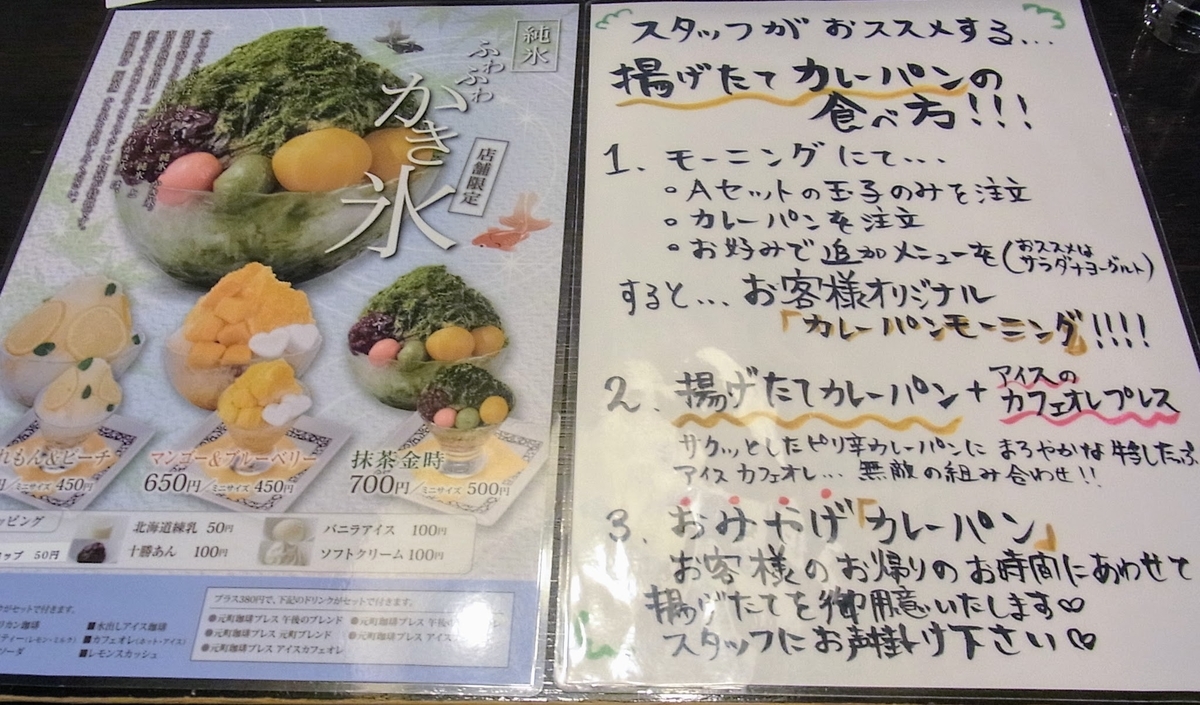 純氷
ふわふわ
かき氷
店舗限定
れもん&ピーチ
マンゴー&ブルーベリー
抹茶金時
円/ミニサイズ 450円
650円/ミニサイズ 450円
700円/ミニサイズ 500円
ッピング
北海道練乳 50円
バニラアイス 100円
ップ 50円
十勝あん 100円
ソフトクリーム 100円
がセットで付きます。
リカン珈琲
■水出しアイス珈琲
ティー(レモン・ミルク)
■カフェオレ(ホット・アイス)
ソーダ
■レモンスカッシュ
プラス380円で、下記のドリンクがセットで付きます。
●元町珈琲プレス 午後のブレンド
●元町珈琲プレス 午後
●元町珈琲プレス 元町ブレンド
●元町珈琲プレス アイス
●元町珈琲プレス アイスカフェオレ
スタッフがおススメする...
揚げたてカレーパンの
食べ方!!!
1. モーニングにて...
○Aセットの玉子のみを注文
○カレーパンを注文
○お好みで追加メニューを(おススメは
サラダナヨーグルト)
すると...お客様オリジナル
「カレーパンモーニング」!!!!
2. 揚げたてカレーパン+アイスの
カフェオレプレス
サクッとしたピリ辛カレーパンにまろやかな牛乳たっぷ
アイスカフェオレ...無敵の組み合わせ!!
3. おみやげ「カレーパン」
お客様のお帰りのお時間にあわせて
揚げたてを御用意いたします♡
スタッフにお声掛け下さい♡